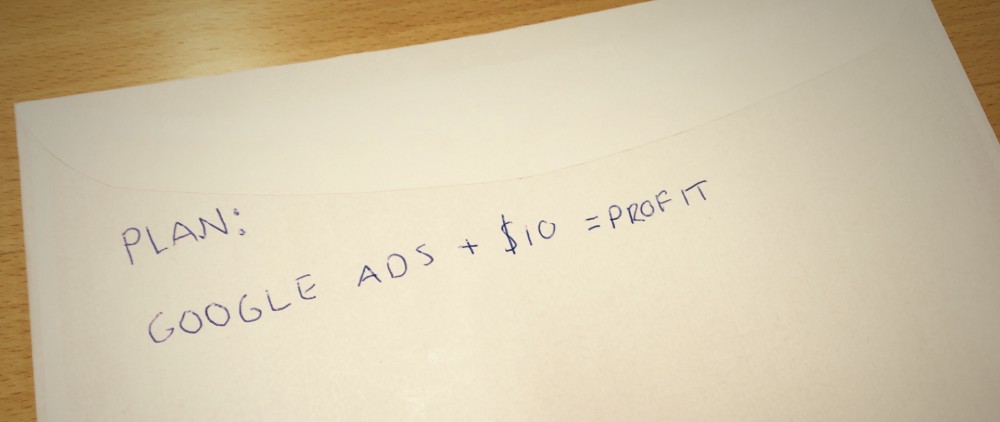 PLAN:
GOOGLE ADS + $10 = PROFIT